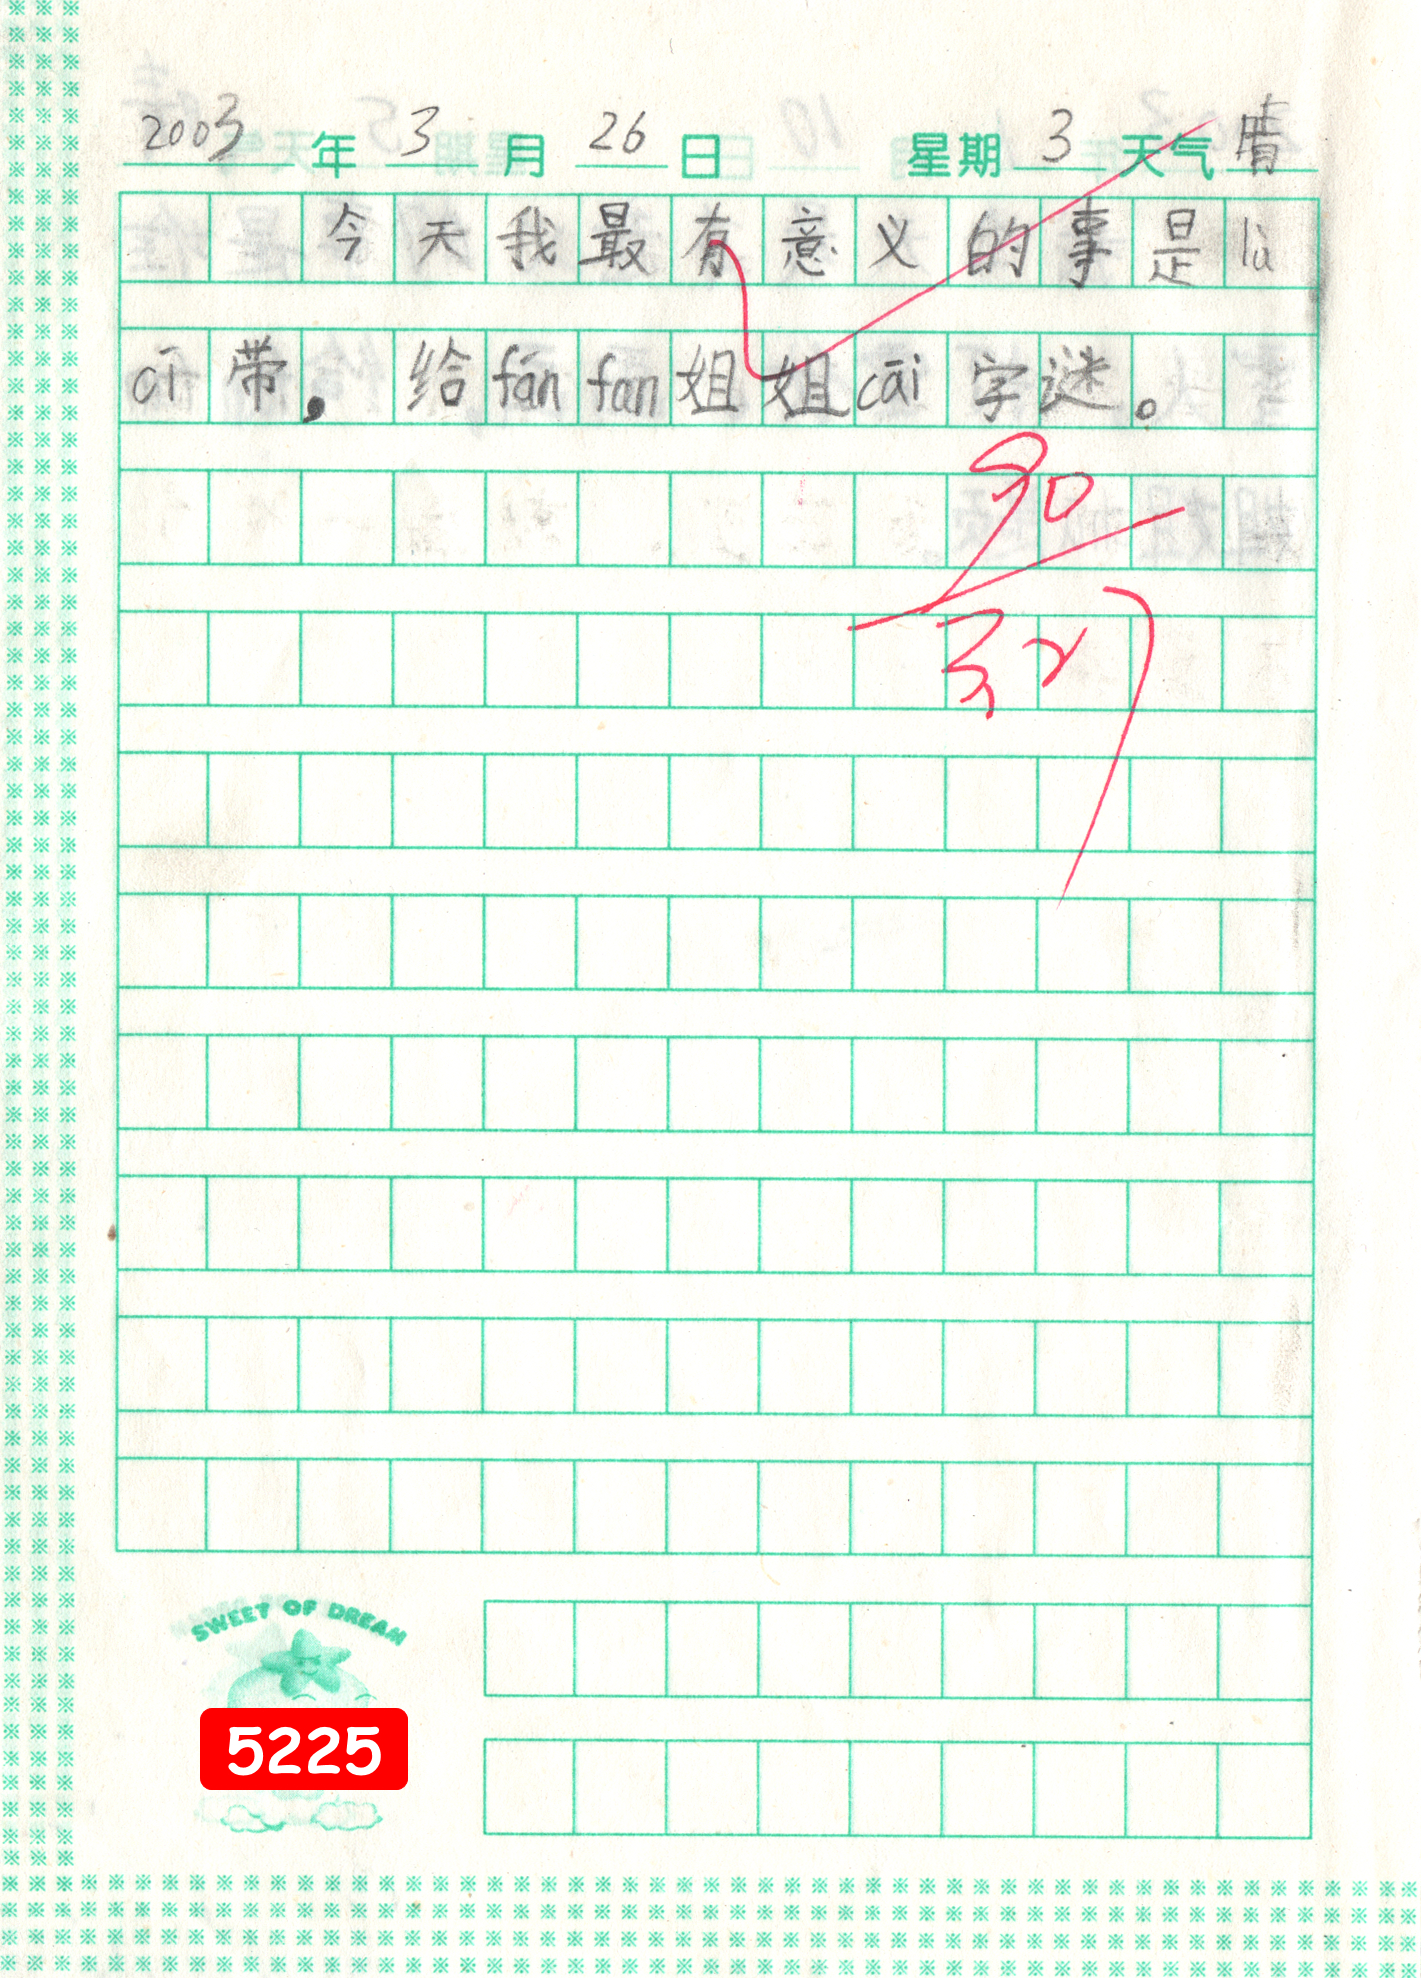 2003年3月26日 星期3天气晴
今天我最有意义的事是lù
cī带，给fánfan姐姐cāi字谜。
90
SWEET OF DREAM
5225